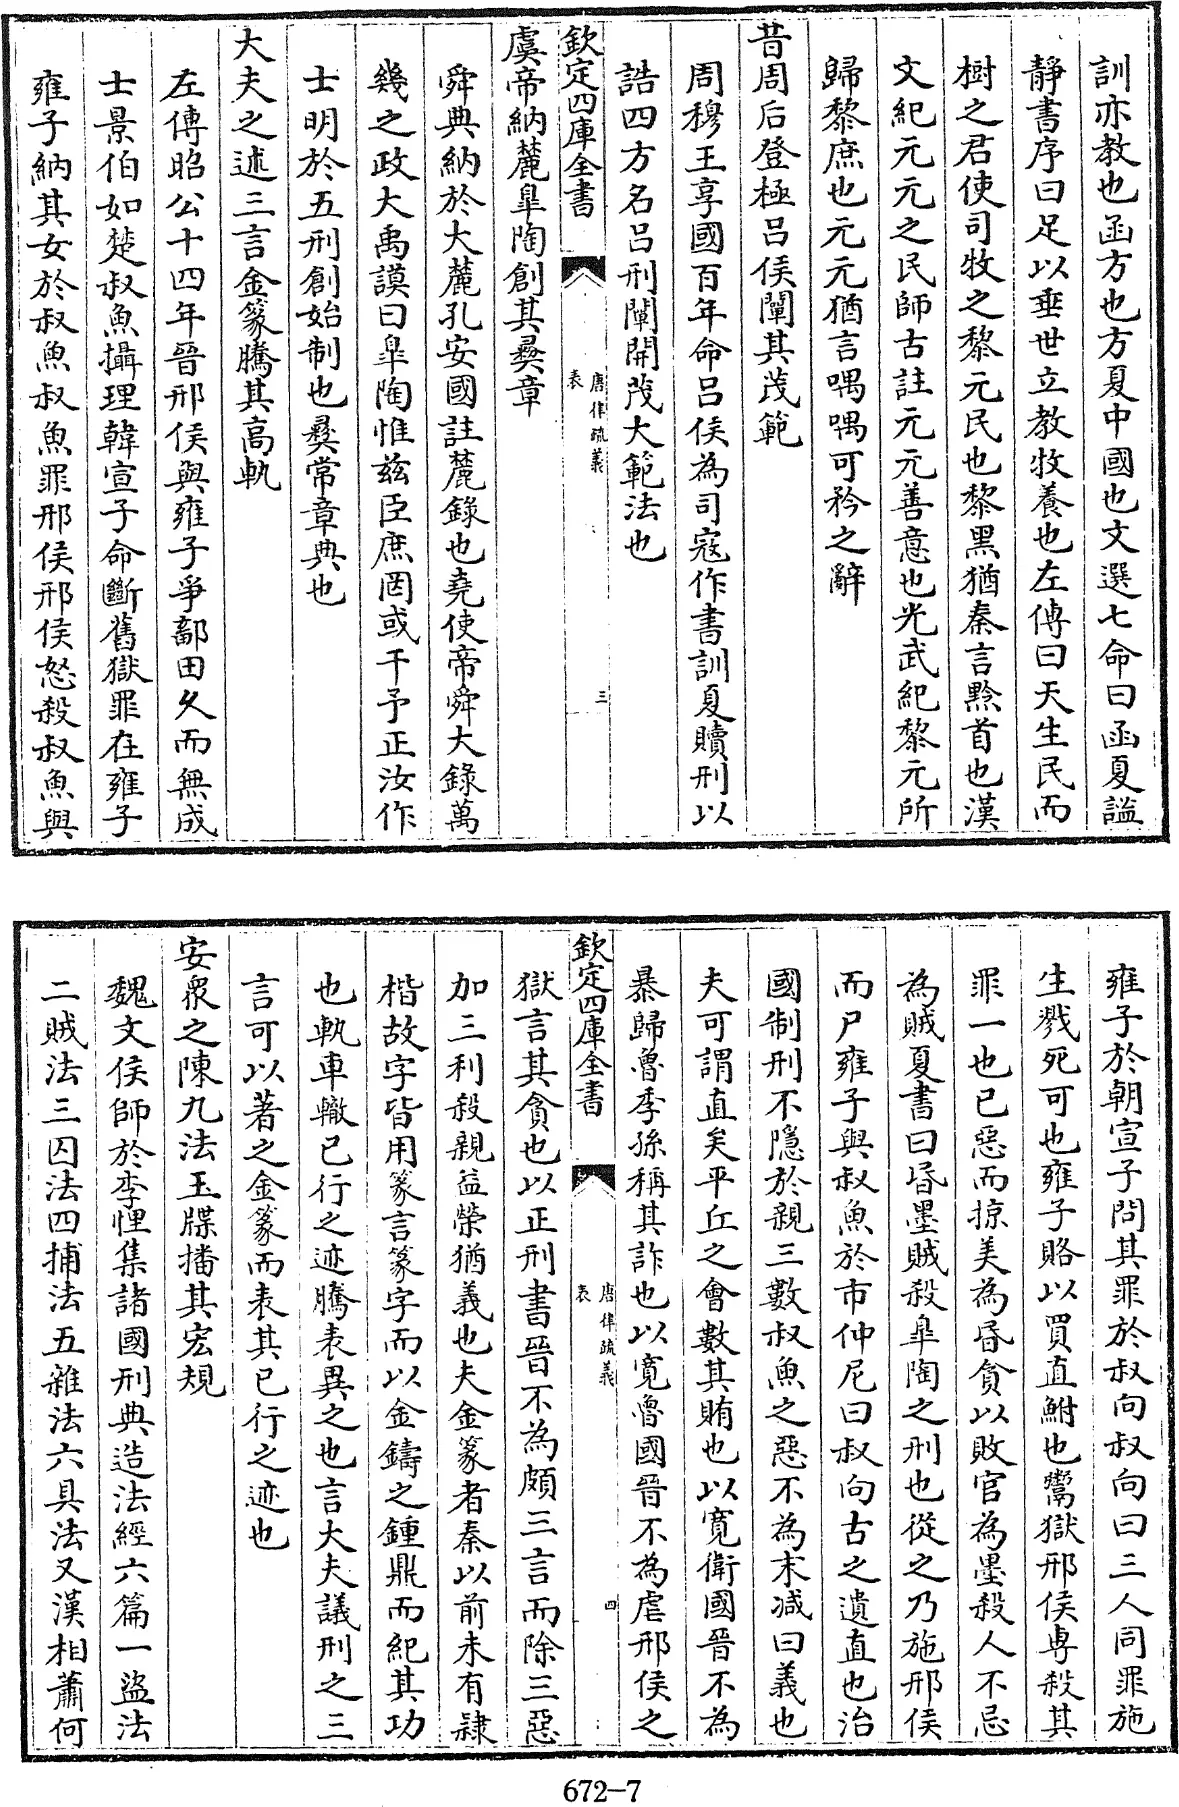 訓亦教也函方也方夏中國也文選七命曰函夏謐
靜書序曰足以垂世立教牧養也左傳曰天生民而
樹之君使司牧之黎元民也黎黑猶秦言黔首也漢
文紀元元之民師古註元元善意也光武紀黎元所
歸黎庶也元元猶言喁喁可矜之辭
昔周后登極呂侯闡其茂範
周穆王享國百年命呂侯為司寇作書訓夏贖刑以
誥四方名呂刑闡開茂大範法也
欽定四庫全書
唐律疏義
表
三
虞帝納麓臯陶創其彛章
舜典納於大麓孔安國註麓錄也堯使帝舜大錄萬
幾之政大禹謨曰臯陶惟兹臣庶罔或干予正汝作
士明於五刑創始制也彛常章典也
大夫之述三言金篆騰其高軌
左傳昭公十四年晉邢侯與雍子爭鄐田久而無成
士景伯如楚叔魚攝理韓宣子命斷舊獄罪在雍子
雍子納其女於叔魚叔魚罪邢侯邢侯怒殺叔魚與
雍子於朝宣子問其罪於叔向叔向曰三人同罪施
生戮死可也雍子賂以買直鮒也鬻獄邢侯専殺其
罪一也已惡而掠美為昬貪以敗官為墨殺人不忌
為賊夏書曰昬墨賊殺臯陶之刑也從之乃施邢侯
而尸雍子與叔魚於市仲尼曰叔向古之遺直也治
國制刑不隱於親三數叔魚之惡不為末減曰義也
夫可謂直矣平丘之會數其賄也以寛衛國晉不為
暴歸魯季孫稱其詐也以寛魯國晉不為虐邢侯之
欽定四庫全書
唐律疏義
表
四
獄言其貪也以正刑書晉不為頗三言而除三惡
加三利殺親益榮猶義也夫金篆者秦以前未有隷
楷故字皆用篆言篆字而以金鑄之鍾鼎而紀其功
也軌車轍已行之迹騰表異之也言大夫議刑之三
言可以著之金篆而表其已行之迹也
安衆之陳九法玉牒播其宏規
魏文侯師於李悝集諸國刑典造法經六篇一盜法
二賊法三囚法四捕法五雜法六具法又漢相蕭何
672-7